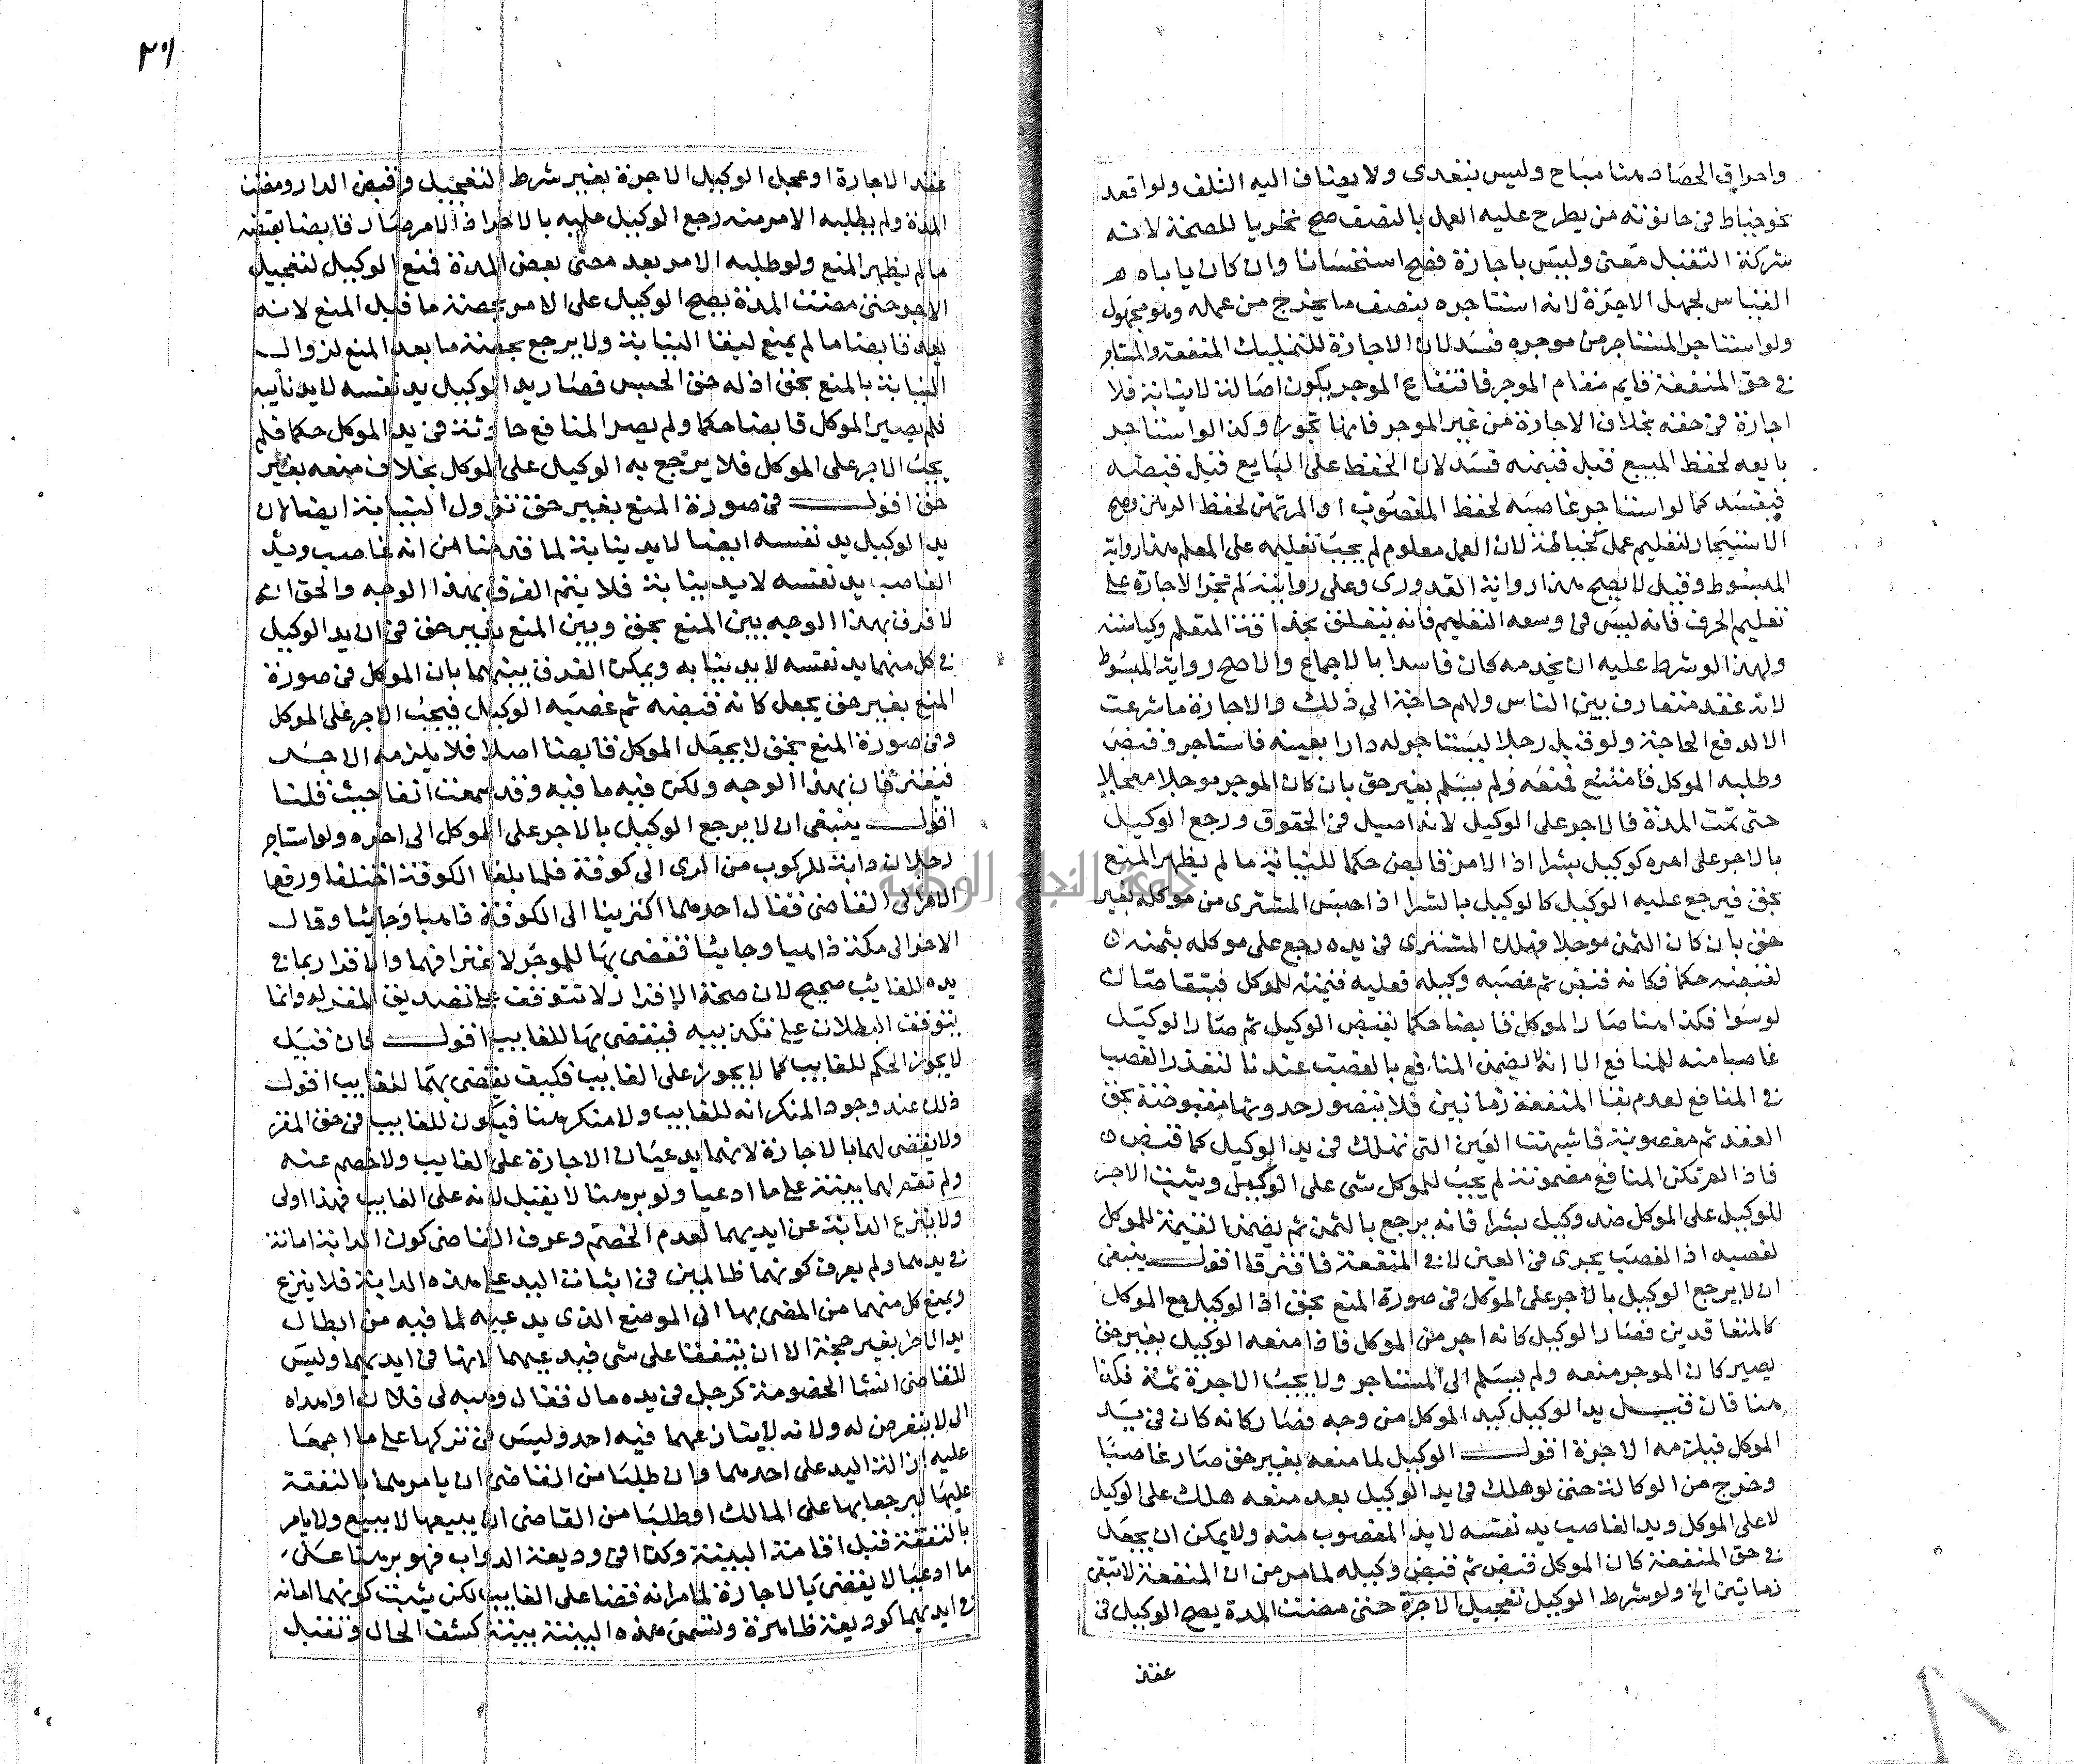 واحراق الحصاد هنا مباح وليس بتعدى ولا يضاف اليه التلف ولو اقعد
نحو خياط فى حانوته من يطرح عليه العمل بالنصف صح تحريا للصحة لانه
شركة التقبل معنى وليس باجارة فصح استحسانا وان كان ياباه
القياس لجهل الاجرة لانه استاجره بنصف ما يخرج من عمله وهو مجهول
ولو استاجر المستاجر من موجره فسد لان الاجارة للتمليك المنفعة والمستاجر
فى حق المنفعة قايم مقام الموجر فانتفاع الموجر يكون اصالة لا نيابة فلا
اجارة فى حقه بخلاف الاجارة من غير الموجر فانها تجوز وكذا لو استاجر
بايعه لحفظ المبيع قبل قبضه فسد لان الحفظ على البايع قبل قبضه
فيفسد كما لو استاجر غاصبه لحفظ المغصوب او المرتهن لحفظ الرهن وصح
الاستيجار لتعليم عمل كخياطة لان العمل معلوم لم يجب تعليمه على المعلم هذا رواية
المبسوط وقيل لا يصح هذا رواية القدورى وعلى روايته لم تجز الاجارة على
تعليم الحرف فانه ليس فى وسعه التعليم فانه يتعلق بحذاقة المتعلم وكياسته
ولهذا لو شرط عليه ان يخدمه كان فاسدا بالاجماع والاصح رواية المبسوط
لانه عقد متعارف بين الناس ولهم حاجة الى ذلك والاجارة ما شرعت
الا لدفع الحاجة ولو وكل رجلا ليستاجر له دارا بعينه فاستاجر وقبض
وطلبه الموكل فامتنع فمنعه ولم يسلم بغير حق بان كان الموجر موجلا معجلا
حتى تمت المدة فالاجر على الوكيل لانه اصيل فى الحقوق ورجع الوكيل
بالاجر على امره كوكيل بشرا اذ الامر قابض حكما للنيابة ما لم يظهر المنع
بحق فيرجع عليه الوكيل كالوكيل بالشرا اذا حبس المشترى من موكله بغير
حق بان كان الثمن موجلا فهلك المشترى فى يده رجع على موكله بثمنه
لقبضه حكما فكانه قبض ثم غصبه وكيله فعليه قيمته للموكل فيتقاصان
لو سوا فكذا هنا صار الموكل قابضا حكما بقبض الوكيل ثم صار الوكيل
غاصبا منه للمنافع الا انه لا يضمن المنافع بالغصب عندنا لتعذر الغصب
فى المنافع لعدم بقا المنفعة زمانين فلا يتصور حدوثها مقبوضة بحق
العقد ثم مغصوبة فاشبهت العين التى تهلك فى يد الوكيل كما قبض
فاذا لم تكن المنافع مضمونة لم يجب للموكل شى على الوكيل ويثبت الاجر
للوكيل على الموكل ضد وكيل بشرا فانه يرجع بالثمن ثم يضمن القيمة للموكل
لغصبه اذ الغصب يجرى فى العين لا فى المنفعة فافترقا اقول ينبغى
ان لا يرجع الوكيل بالاجر على الموكل فى صورة المنع بحق اذ الوكيل مع الموكل
كالمتعاقدين فصار الوكيل كانه اجر من الموكل فاذا منعه الوكيل بغير حق
يصير كان الموجر منعه ولم يسلم الى المستاجر ولا يجب الاجرة ثمة فكذا
هنا فان قيل يد الوكيل كيد الموكل من وجه فصار كانه كان فى يد
الموكل فيلزمه الاجرة اقول الوكيل لما منعه بغير حق صار غاصبا
وخرج من الوكالة حتى لو هلك فى يد الوكيل بعد منعه هلك على الوكيل
لا على الموكل ويد الغاصب يد نفسه لا يد المغصوب منه ولا يمكن ان يجعل
فى حق المنفعة كان الموكل قبض ثم قبض وكيله لما مر من ان المنفعة لا تبقى
زمانين الخ ولو شرط الوكيل تعجيل الاجرة حتى مضت المدة يصح الوكيل فى
عقد
٢٦
عقد الاجارة او عجل الوكيل الاجرة بغير شرط التعجيل وقبض الدار ومضت
المدة ولم يطلبه الامر منه رجع الوكيل عليه بالاجر اذ الامر صار قابضا بقبضه
ما لم يظهر المنع ولو طلبه الامر بعد مضى بعض المدة فمنع الوكيل لتعجيل
الاجر حتى مضت المدة يصح الوكيل على الامر بحصة ما قبل المنع لانه
يعد قابضا ما لم يمنع لبقا النيابة ولا يرجع بحصة ما بعد المنع لزوال
النيابة بالمنع بحق اذ له حق الحبس فصار يد الوكيل يد نفسه لا يد نايبه
فلم يصير الموكل قابضا حكما ولم يصر المنافع حادثة فى يد الموكل حكما فلم
يجب الاجر على الموكل فلا يرجع به الوكيل على الموكل بخلاف منعه بغير
حق اقول فى صورة المنع بغير حق تزول النيابة ايضا لان
يد الوكيل يد نفسه ايضا لا يد نيابة لما قدمنا من انه غاصب ويد
الغاصب يد نفسه لا يد نيابة فلا يتم الفرق بهذا الوجه والحق انه
لا فرق بهذا الوجه بين المنع بحق وبين المنع بغير حق فى ان يد الوكيل
فى كل منهما يد نفسه لا يد نيابه ويمكن الفرق بينهما بان الموكل فى صورة
المنع بغير حق يجعل كانه قبضه ثم غصبه الوكيل فيجب الاجر على الموكل
وفى صورة المنع بحق لا يجعل الموكل قابضا اصلا فلا يلزمه الاجر
فيفترقان بهذا الوجه ولكن فيه ما فيه وقد سمعت انفا حيث قلنا
اقول ينبغى ان لا يرجع الوكيل بالاجر على الموكل الى اخره ولو استاجر
رجلان دابة للركوب من الرى الى كوفة فلما بلغا الكوفة اختلفا ورفعا
الامر الى القاضى فقال احدهما اكترينا الى الكوفة ذاهبا وجائيا وقال
الاخر الى مكة ذاهبا وجائيا فقضى بها للموجر لاعترافهما والاقرار بما فى
يده للغايب صحيح لان صحة الاقرار لا تتوقف على تصديق المقر له وانما
يتوقف البطلان على تكذيبه فيقضى بها للغايب اقول فان قيل
لا يجوز الحكم للغايب كما لا يجوز على الغايب فكيف يقضى بها للغايب اقول
ذلك عند وجود المنكر انه للغايب ولا منكر هنا فيكون للغايب فى حق المقر
ولا يقضى لهما بالاجارة لانهما يدعيان الاجارة على الغايب ولا خصم عنه
ولم تقم لهما بينة على ما ادعيا ولو برهنا لا يقبل لانه على الغايب فهذا اولى
ولا ينزع الدابة عن ايديهما لعدم الخصم وعرف القاضى كون الدابة امانة
فى يدهما ولم يعرف كونهما ظالمين فى اثبات اليد على هذه الدابة فلا ينزع
ويمنع كل منهما من المضى بها الى الموضع الذى يدعيه لما فيه من ابطال
يد الاخر بغير حجة الا ان يتفقا على شى فيدعهما لانها فى ايديهما وليس
للقاضى انشا الخصومة كرجل فى يده مال فقال وهبه لى فلان او اهداه
الى لا يتعرض له ولانه لا ينازعهما فيه احد وليس فى تركها على ما اجمعا
عليه ازالة اليد على احدهما وان طلبا من القاضى ان يامرهما بالنفقة
عليها ليرجعا بها على المالك او طلبا من القاضى ان يبيعها لا يبيع ولا يامر
بالنفقة قبل اقامة البينة وكذا فى وديعة الدواب فهو برهنا على
ما ادعيا لا يقضى بالاجارة لما مر انه قضا على الغايب لكن يثبت كونهما امانة
فى ايديهما كوديعة ظاهرة وتسمى هذه البينة بينة كشف الحال وتقبل
جامعة النجاح الوطنية